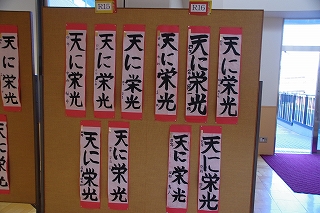 R15
R16
天に栄光
天に栄光
天に栄光
天に栄光
天に栄光
天に栄光
天に栄光
天に栄光
天に栄光
天に栄光
天に栄光